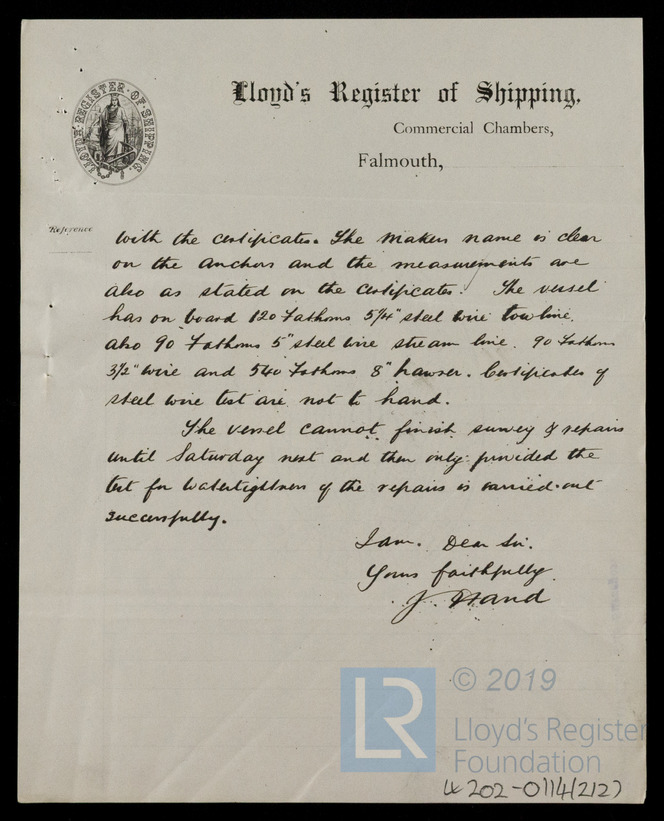 LLOYD'S REGISTER OF SHIPPING.
Lloyd's Register of Shipping,
Commercial Chambers,
Falmouth,
Reference
with the certificates. The makers name is clear
on the anchors and the measurements are
also as stated on the certificates. The vessel
has on board 120 Fathoms 5 1/4" steel wire tow line.
also 90 Fathoms 5" steel wire stream line. 90 Fathoms
3 1/2" wire and 540 Fathoms 8" hawser. Certificates of
steel wire test are not to hand.
The vessel cannot finish survey & repairs
until Saturday next and then only provided the
test for watertightness of the repairs is carried out
successfully.
I am. Dear Sir.
Yours faithfully
J. Hand
LR
© 2019
Lloyd's Register
Foundation
202-0114(212)